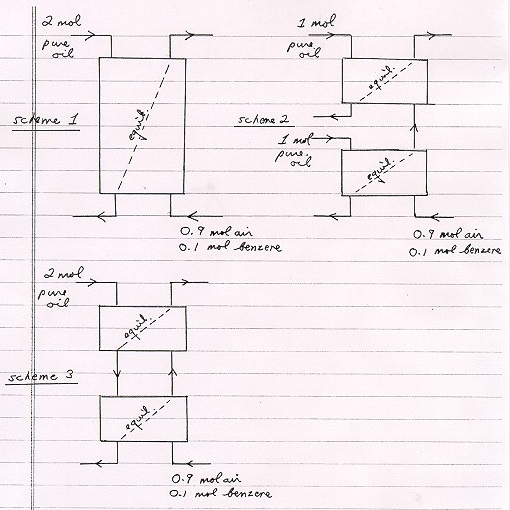 2 mol
pure
oil
scheme 1
equil.
0.9 mol air
0.1 mol benzene
1 mol
pure
oil
equil.
scheme 2
1 mol
pure
oil
equil.
0.9 mol air
0.1 mol benzene
2 mol
pure
oil
equil.
scheme 3
equil.
0.9 mol air
0.1 mol benzene